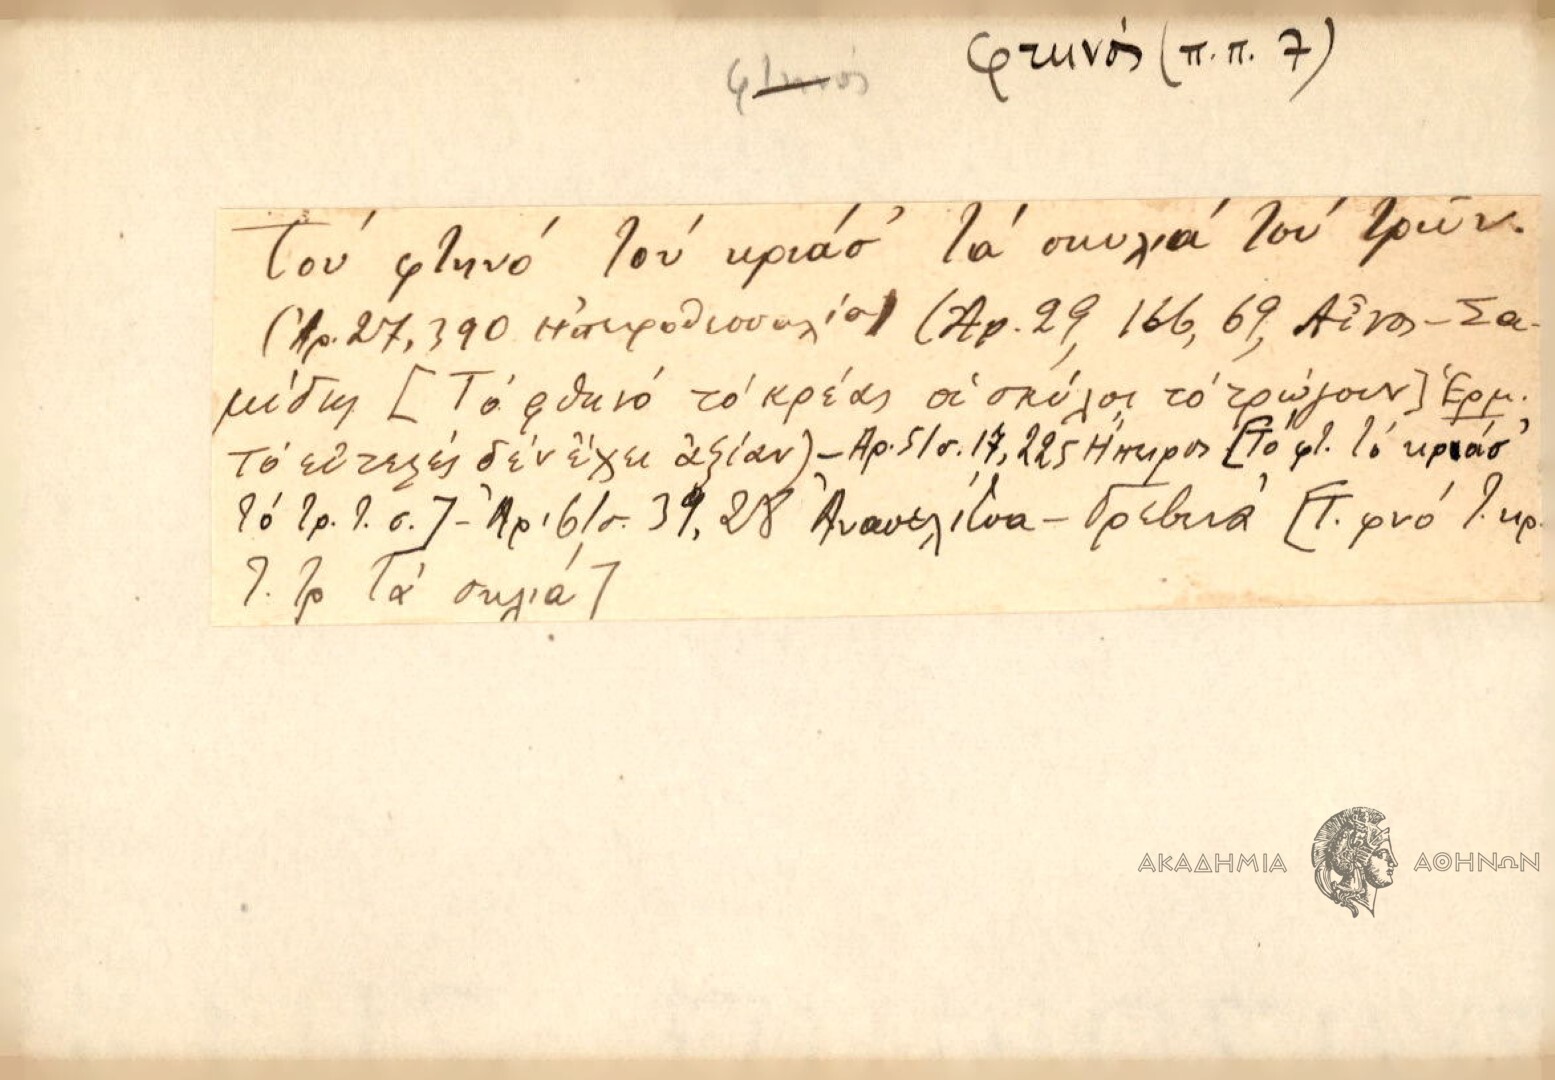 φτηνός φτηνός (π.π. 7)
Τού φτηνό τού κριάσ' τά σκυλιά τού τρῶν.
(Ἀρ. 27, 390 Ἠπειροθεσσαλία) (Ἀρ. 29, 166, 69, Αἶνος - Σα-
μίδης [Τό φθηνό τό κρέας οἱ σκύλοι τό τρώγουν] Ἑρμ.
τό εὐτελές δέν ἔχει ἀξίαν) - Ἀρ. 51 σ. 17, 225 Ἤπειρος [Τό φτ. τό κριάσ'
τό τρ. τ. σ.] - Ἀρ. 61 σ. 39, 28 - Γρεβενά [Τ. φνό τ. κρ.
τ. τρ τά σκλιά]
ΑΚΑΔΗΜΙΑ ΑΘΗΝΩΝ